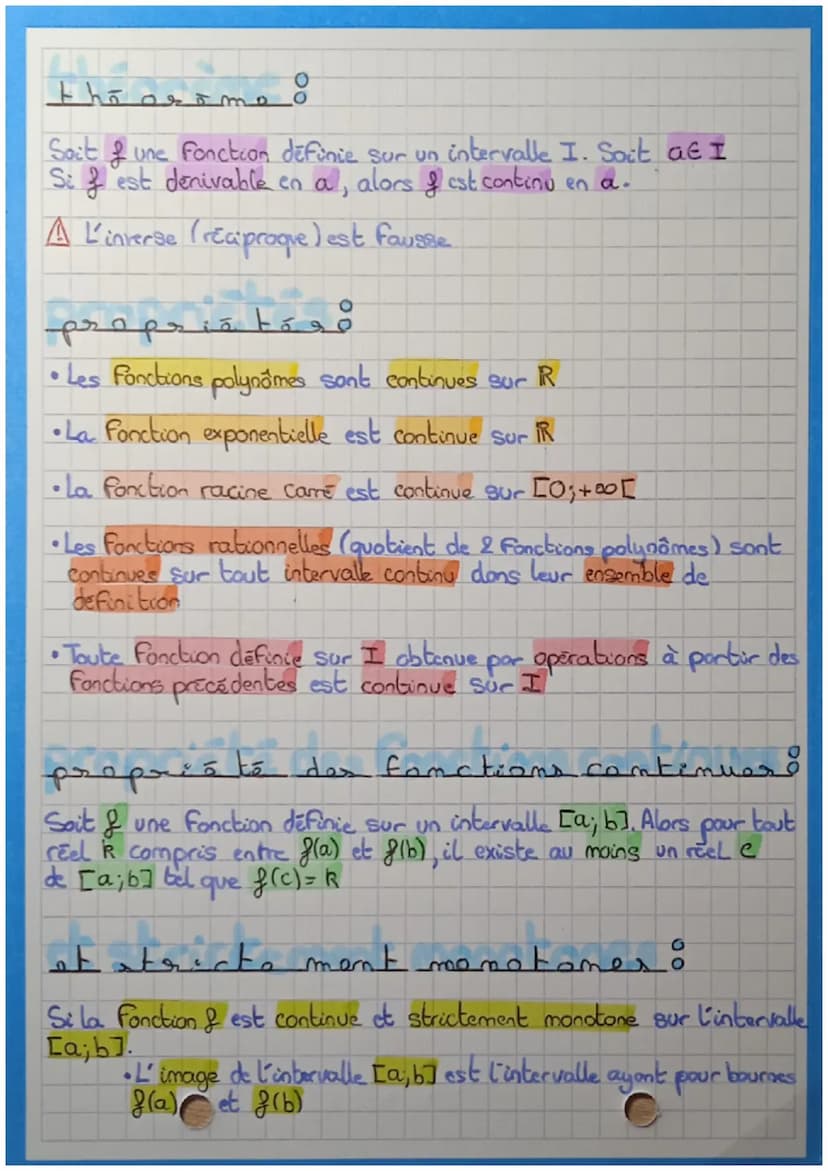 théorème :
Soit f une fonction définie sur un intervalle I. Soit a∈I
Si f est dérivable en a, alors f est continu en a.
⚠ L'inverse (réciproque) est fausse
propriétés :
• Les fonctions polynômes sont continues sur ℝ
• La fonction exponentielle est continue sur ℝ
• La fonction racine carré est continue sur [0;+∞[
• Les fonctions rationnelles (quotient de 2 fonctions polynômes) sont
continues sur tout intervalle continu dans leur ensemble de
définition
• Toute fonction définie sur I obtenue par opérations à partir des
fonctions précédentes est continue sur I
propriété des fonctions continues :
Soit f une fonction définie sur un intervalle [a;b]. Alors pour tout
réel k compris entre f(a) et f(b), il existe au moins un réel c
de [a;b] tel que f(c)=k
et strictement monotones :
Si la fonction f est continue et strictement monotone sur l'intervalle
[a;b].
• L'image de l'intervalle [a;b] est l'intervalle ayant pour bournes
f(a) et f(b)